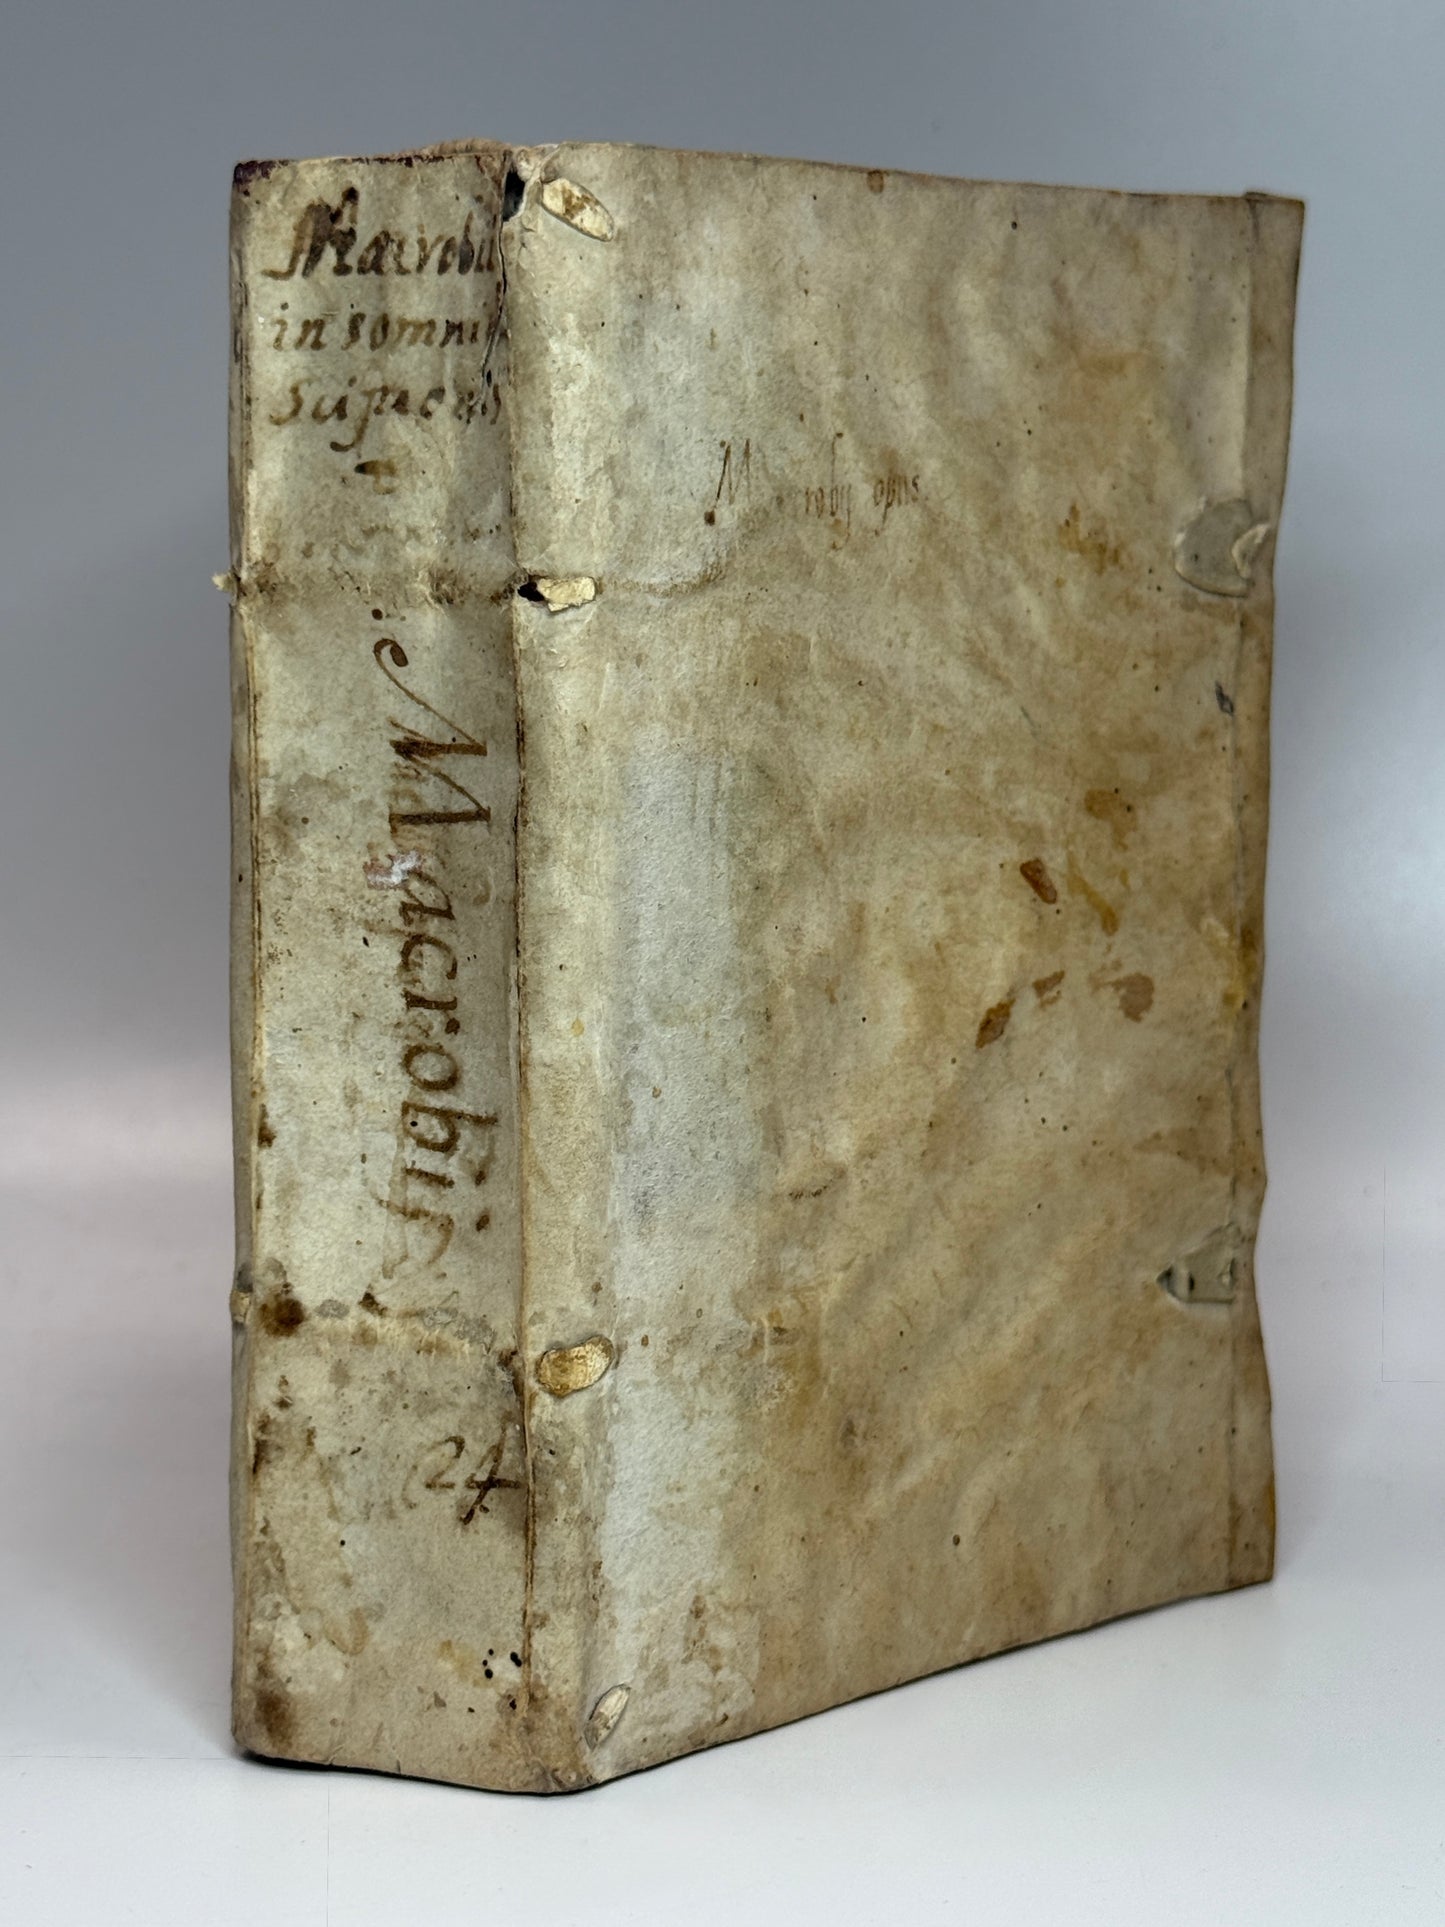 Macrobii
in somniu
scipionis
Macrobij
24
M robij opus.